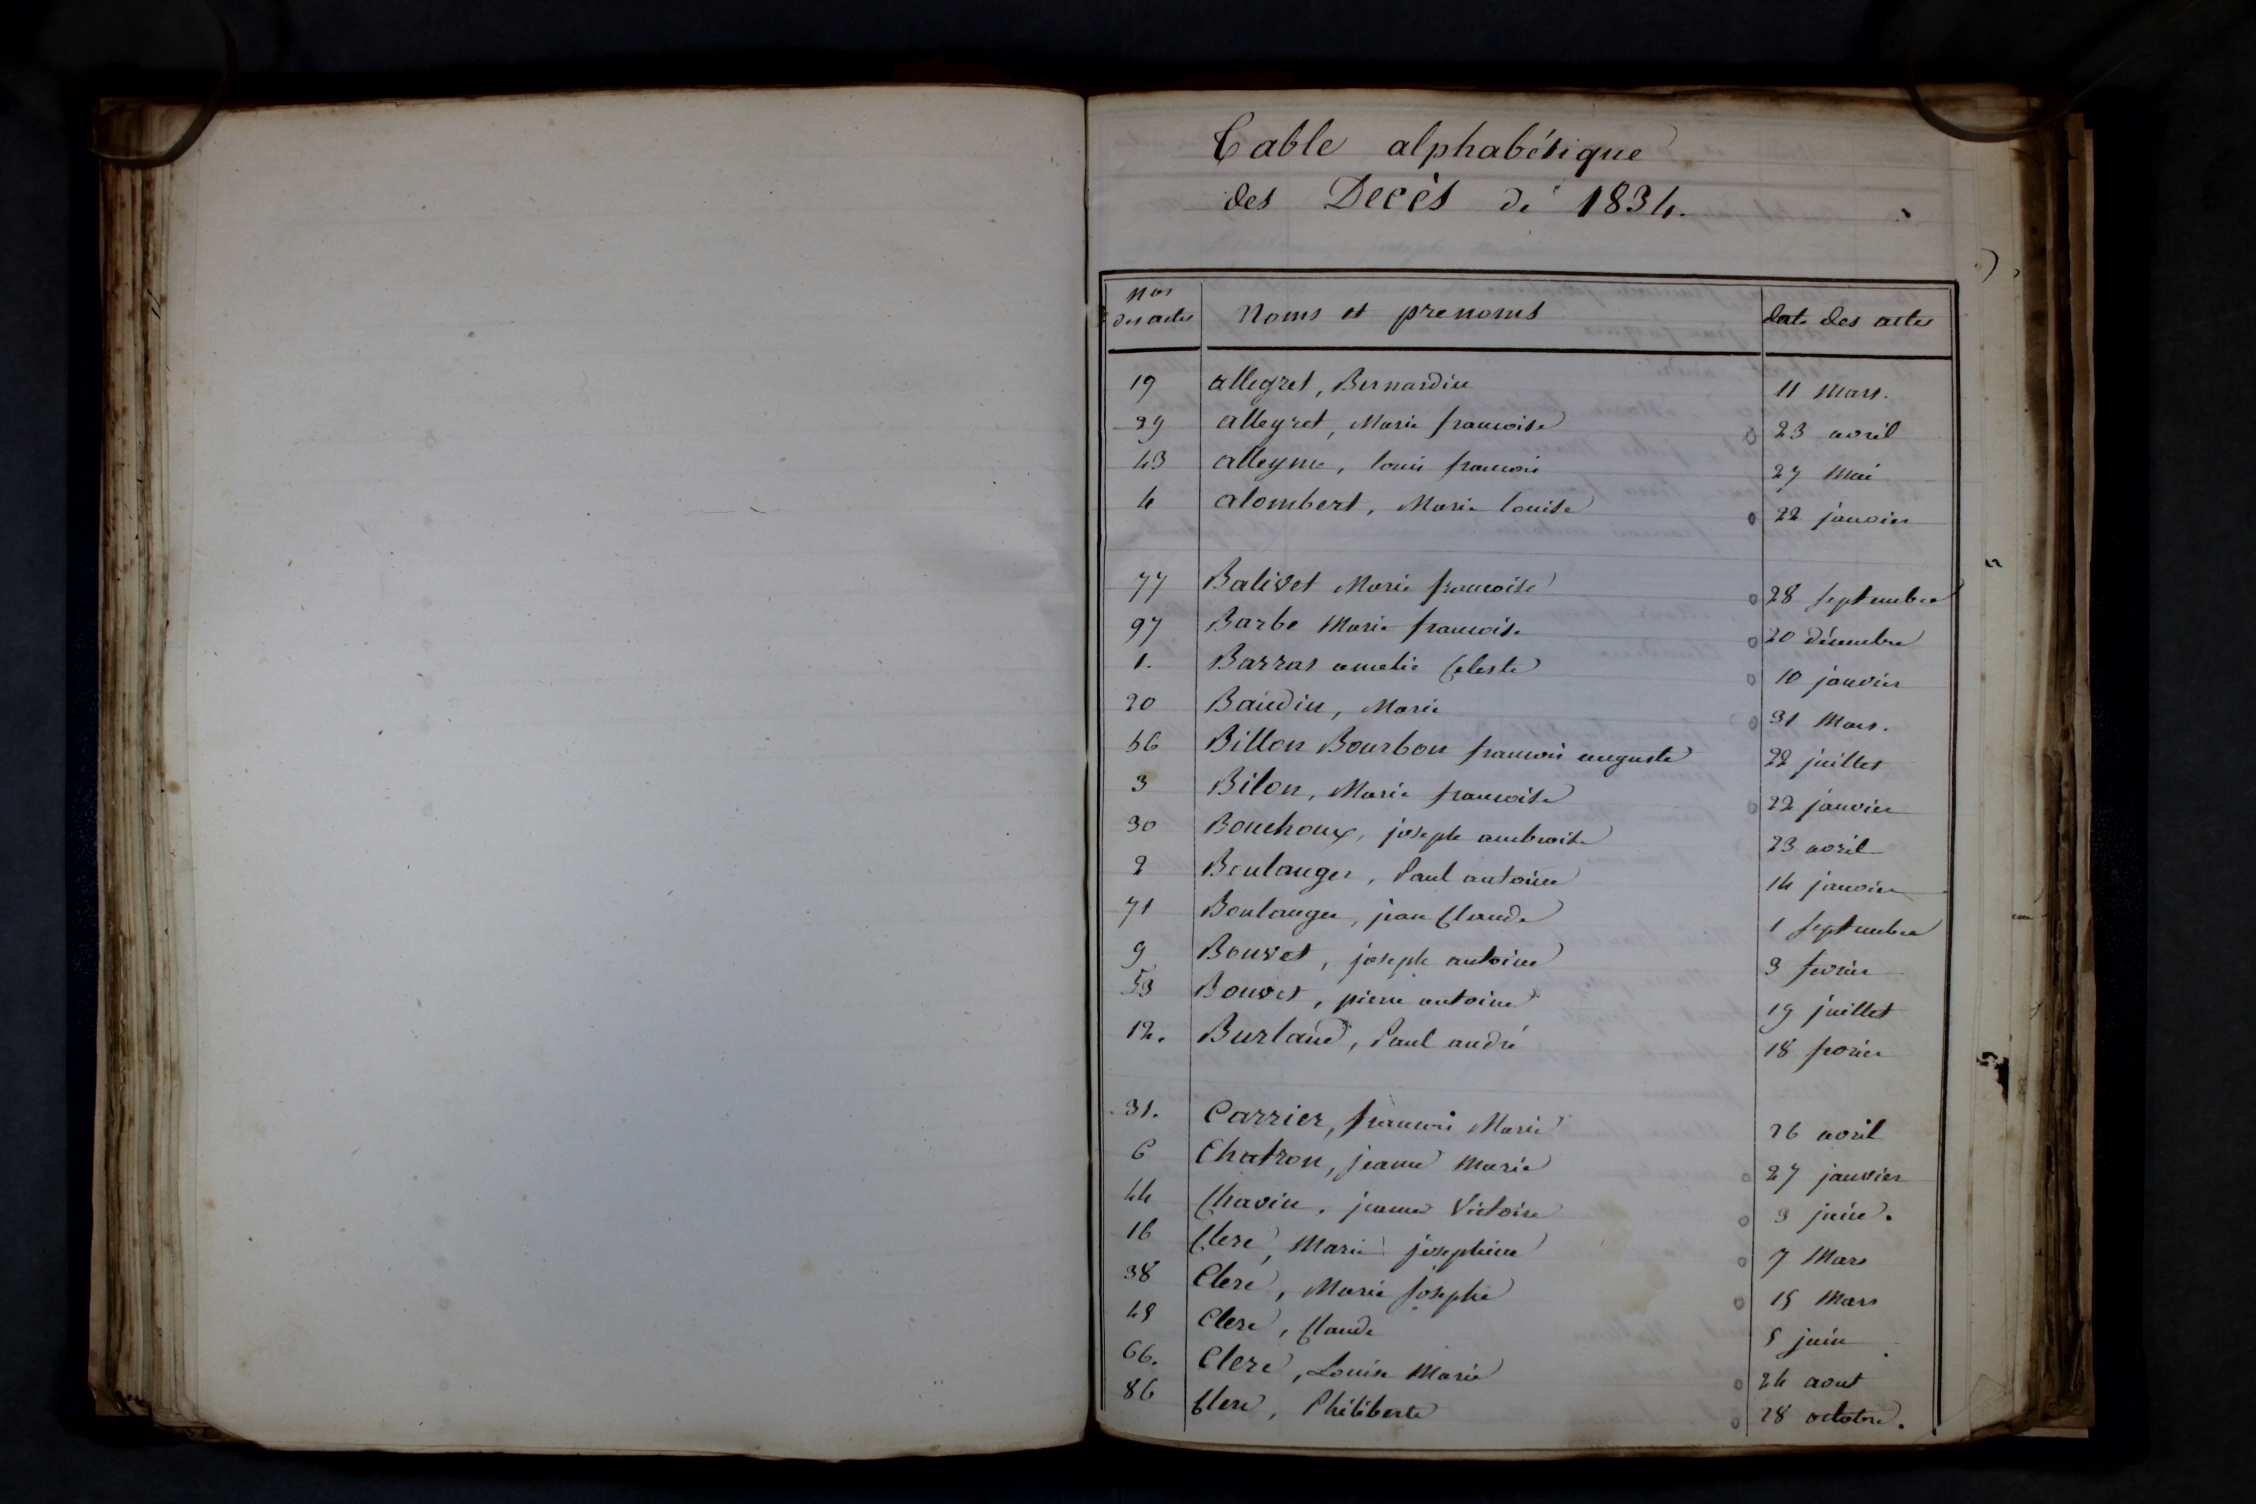 Table alphabétique
des Decès de 1834.
Nos des actes Noms et prenoms date des actes
19 allegret, Bernardin 11 Mars.
29 allegret, Marie francoise 23 avril
43 alleyne, louis francois 27 Mai
4 alombert, Marie louise 22 janvier
77 Balivet Marie francoise 28 septembre
97 Barbe Marie francoise 20 décembre
1. Barras amelie Celeste 10 janvier
20 Baudin, Marie 31 Mars.
56 Billon Bourbon francois auguste 22 juillet
3 Bilon, Marie francoise 22 janvier
30 Bouchoux, joseph ambroise 23 avril
2 Boulanger, Paul antoine 14 janvier
71 Boulanger, jean Claude 1 septembre
9 Bouvet, joseph antoine 3 fevrier
53 Bouvet, pierre antoine 19 juillet
12. Burlaud, Paul andré 18 fevrier
31. Carrier, francois Marie 26 avril
6 Chatron, jeanne Marie 27 janvier
44 Chavin, jeanne Victoire 3 juin.
16 Clerc, Marie josephine 7 Mars
38 Clerc, Marie Josephe 15 Mars
48 Clerc, Claude 5 juin
66. Clerc, Louise Marie 24 aout
86 Clerc, Philiberte 28 octobre.